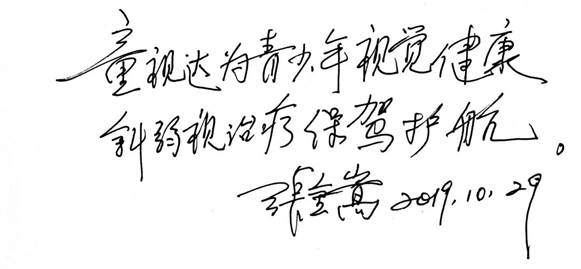 童视达为青少年视觉健康
斜弱视治疗保驾护航。
张金嵩 2019.10.29